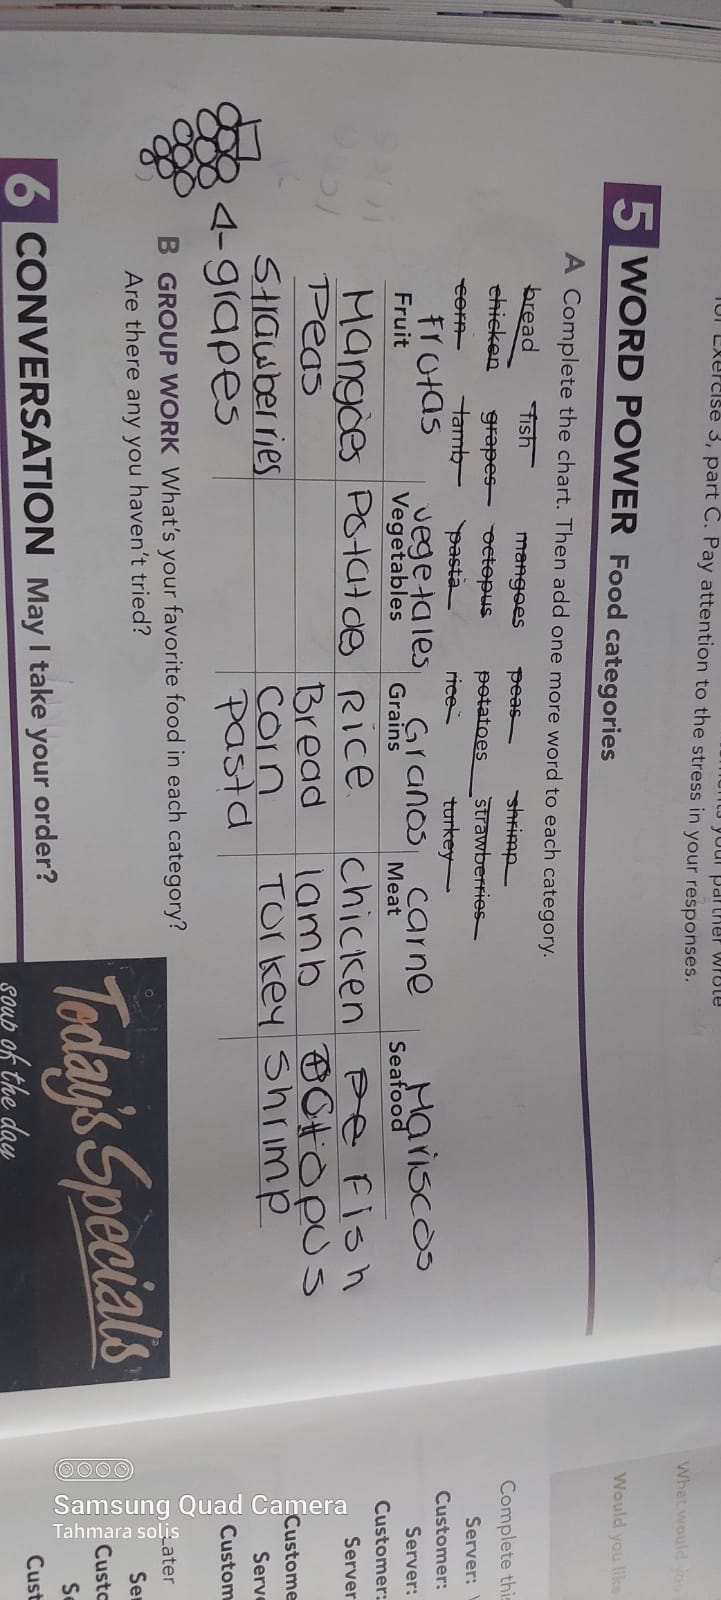 for Exercise 3, part C. Pay attention to the stress in your responses.
5 WORD POWER Food categories
A Complete the chart. Then add one more word to each category.
bread fish mangoes peas shrimp
chicken grapes octopus potatoes strawberries
corn lamb pasta rice turkey
frutas vegetales Granos carne Mariscos
Fruit Vegetables Grains Meat Seafood
Mangoes Potatoes Rice chicken Fish
Peas Bread lamb Octopus
Strawberries Corn Torkey Shrimp
4-grapes Pasta
B GROUP WORK What's your favorite food in each category?
Are there any you haven't tried?
6 CONVERSATION May I take your order?
Today's Specials
soup of the day
What would you
Would you like
Complete this
Server:
Customer:
Server:
Customer:
Server
Custome
Serve
Custom
Later
Ser
Custo
Se
Cust
Samsung Quad Camera
Tahmara solis